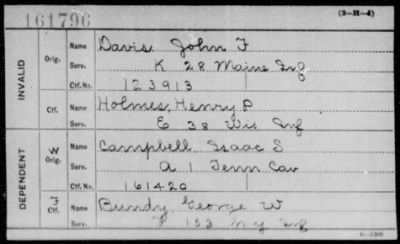 161796
(3-H-4)
INVALID
Orig. Name Davis John F
Serv. K 28 Maine Inf
Ctf. No. 123913
Ctf. Name Holmes, Henry P
Serv. E 38 Wis Inf
DEPENDENT
W Orig. Name Campbell, Isaac S
Serv. A 1 Tenn Cav
Ctf. No. 161420
Ctf. Name Bundy George W
Serv. F N.Y. Inf